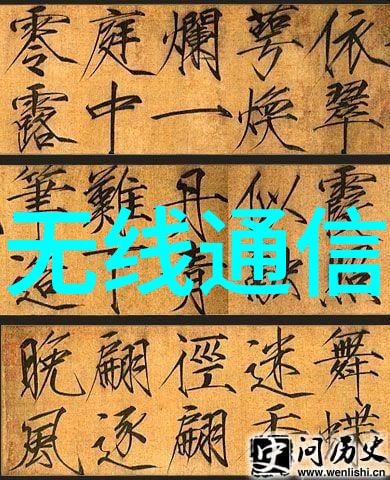 依翠
萼煥
爛一
庭中
零露
霞照
似融
丹青
難下
筆造
舞蝶
迷香
徑翩
翩逐
晚風
无线通信
问历史
www.wenlishi.cn